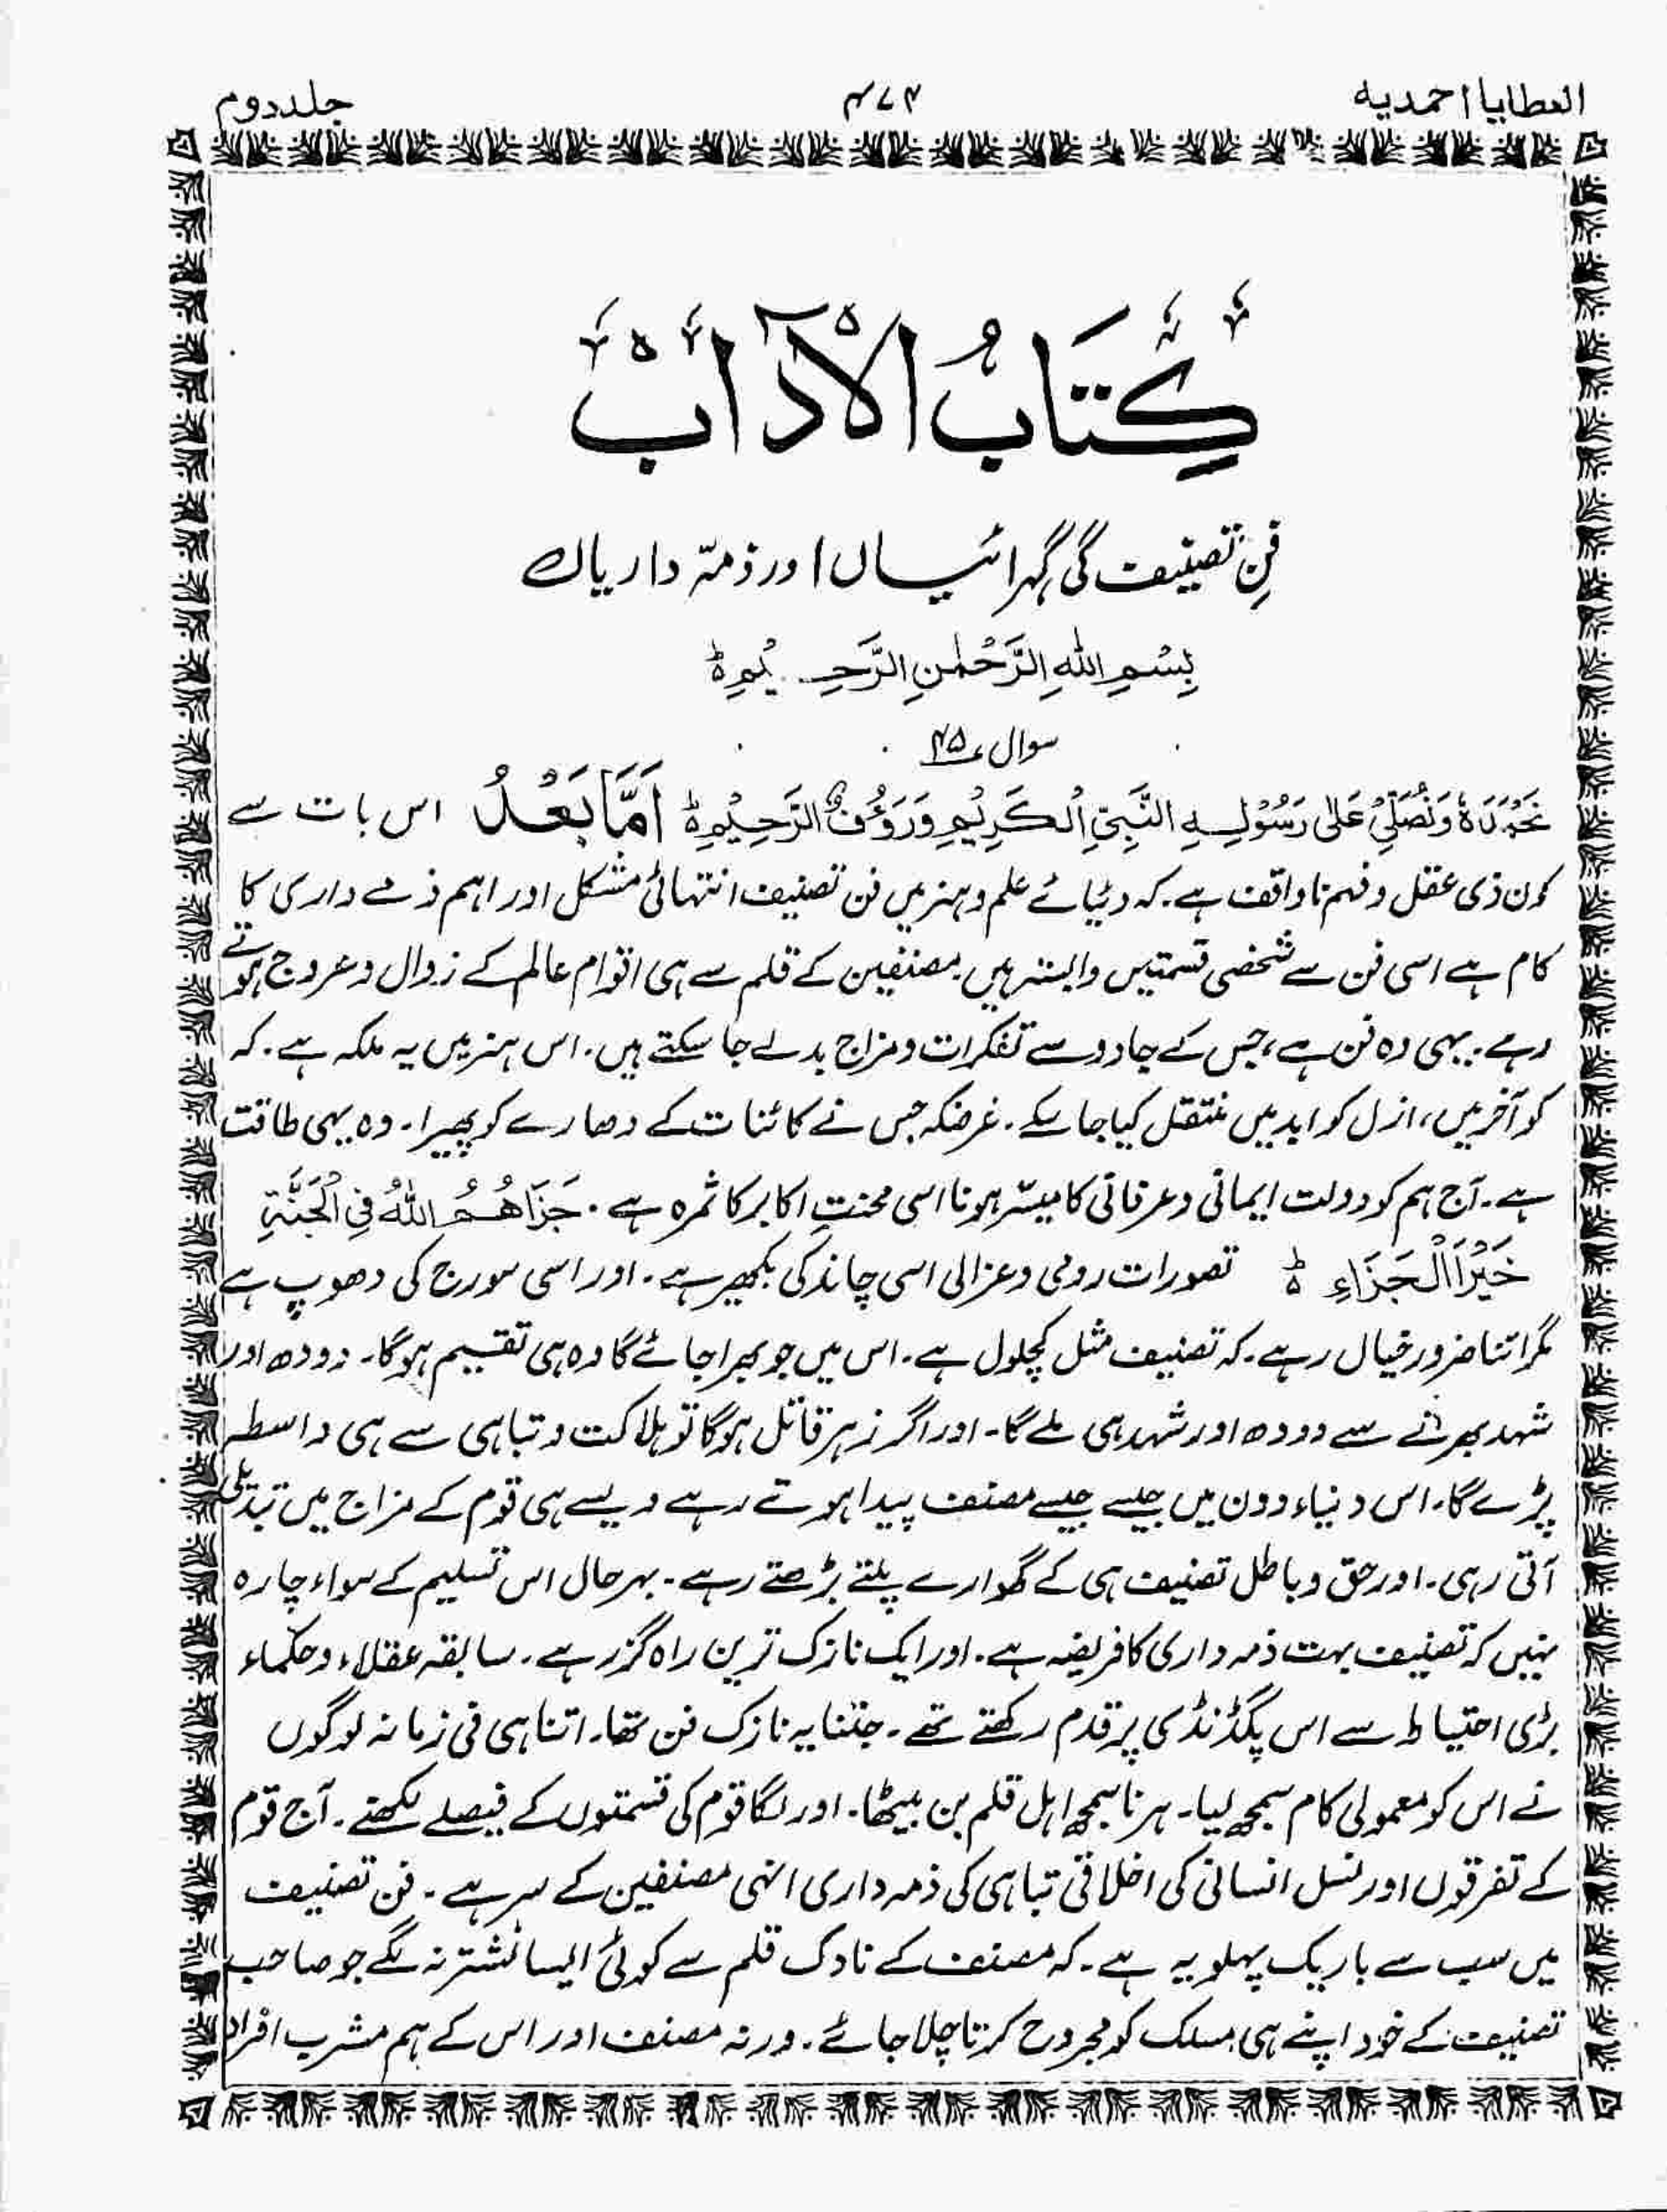 العطایا احمدیہ
۴۷۴
جلد دوم
كِتَابُ الْآدَابْ
فنِ تصنیف کی گہرائیاں اور ذمّہ داریاں
بِسْمِ اللّٰهِ الرَّحْمٰنِ الرَّحِيْمِ ۵ط
سوال ۴۵
نَحْمَدُهٗ وَنُصَلِّىْ عَلٰى رَسُوْلِهِ النَّبِىِّ الْكَرِيْمِ وَرَؤُفٌ الرَّحِيْمِ ۵ط اَمَّا بَعْدُ اس بات سے
کون ذی عقل و فہم ناواقف ہے۔ کہ دنیائے علم و ہنر میں فن تصنیف انتہائی مشکل اور اہم ذمے داری کا
کام ہے اسی فن سے شخصی قسمتیں وابستہ ہیں۔ مصنفین کے قلم سے ہی اقوام عالم کے زوال و عروج ہوتے
رہے۔ یہی وہ فن ہے، جس کے جادو سے تفکرات و مزاج بدلے جا سکتے ہیں۔ اس ہنر میں یہ ملکہ ہے۔ کہ
کو آخر میں، ازل کو ابد میں منتقل کیا جا سکے۔ غرضکہ جس نے کائنات کے دھارے کو پھیرا۔ وہ یہی طاقت
ہے۔ آج ہم کو دولت ایمانی و عرفانی کا میسّر ہونا اسی محنتِ اکابر کا ثمرہ ہے۔ جَزَاهُمُ اللّٰهُ فِى الْجَنَّةِ
خَيْرَ الْجَزَاءِ ۵ط تصورات رومی و غزالی اسی چاند کی بکھیر ہے۔ اور اسی سورج کی دھوپ ہے
مگر اتنا ضرور خیال رہے۔ کہ تصنیف مثل کچلول ہے۔ اس میں جو بھرا جائے گا وہ ہی تقسیم ہوگا۔ دودھ اور
شہد بھرنے سے دودھ اور شہد ہی ملے گا۔ اور اگر زہر قاتل ہوگا تو ہلاکت و تباہی سے ہی واسطہ
پڑے گا۔ اس دنیاء دون میں جیسے جیسے مصنف پیدا ہوتے رہے ویسے ہی قوم کے مزاج میں تبدیلی
آتی رہی۔ اور حق و باطل تصنیف ہی کے گہوارے پلتے بڑھتے رہے۔ بہرحال اس تسلیم کے سواء چارہ
نہیں کہ تصنیف بہت ذمہ داری کا فریضہ ہے۔ اور ایک نازک ترین راہ گزر ہے۔ سابقہ عقلاء و حکماء
بڑی احتیاط سے اس پگڈنڈی پر قدم رکھتے تھے۔ جتنا یہ نازک فن تھا۔ اتنا ہی فی زمانہ لوگوں
نے اس کو معمولی کام سمجھ لیا۔ ہر ناسمجھ اہل قلم بن بیٹھا۔ اور لگا قوم کی قسمتوں کے فیصلے لکھنے۔ آج قوم
کے تفرقوں اور نسل انسانی کی اخلاقی تباہی کی ذمہ داری انہی مصنفین کے سر ہے۔ فن تصنیف
میں سب سے باریک پہلو یہ ہے۔ کہ مصنف کے نادک قلم سے کوئی ایسا نشتر نہ لگے جو صاحب
تصنیف کے خود اپنے ہی مسلک کو مجروح کرتا چلا جائے۔ ورنہ مصنف اور اس کے ہم مشرب افراد